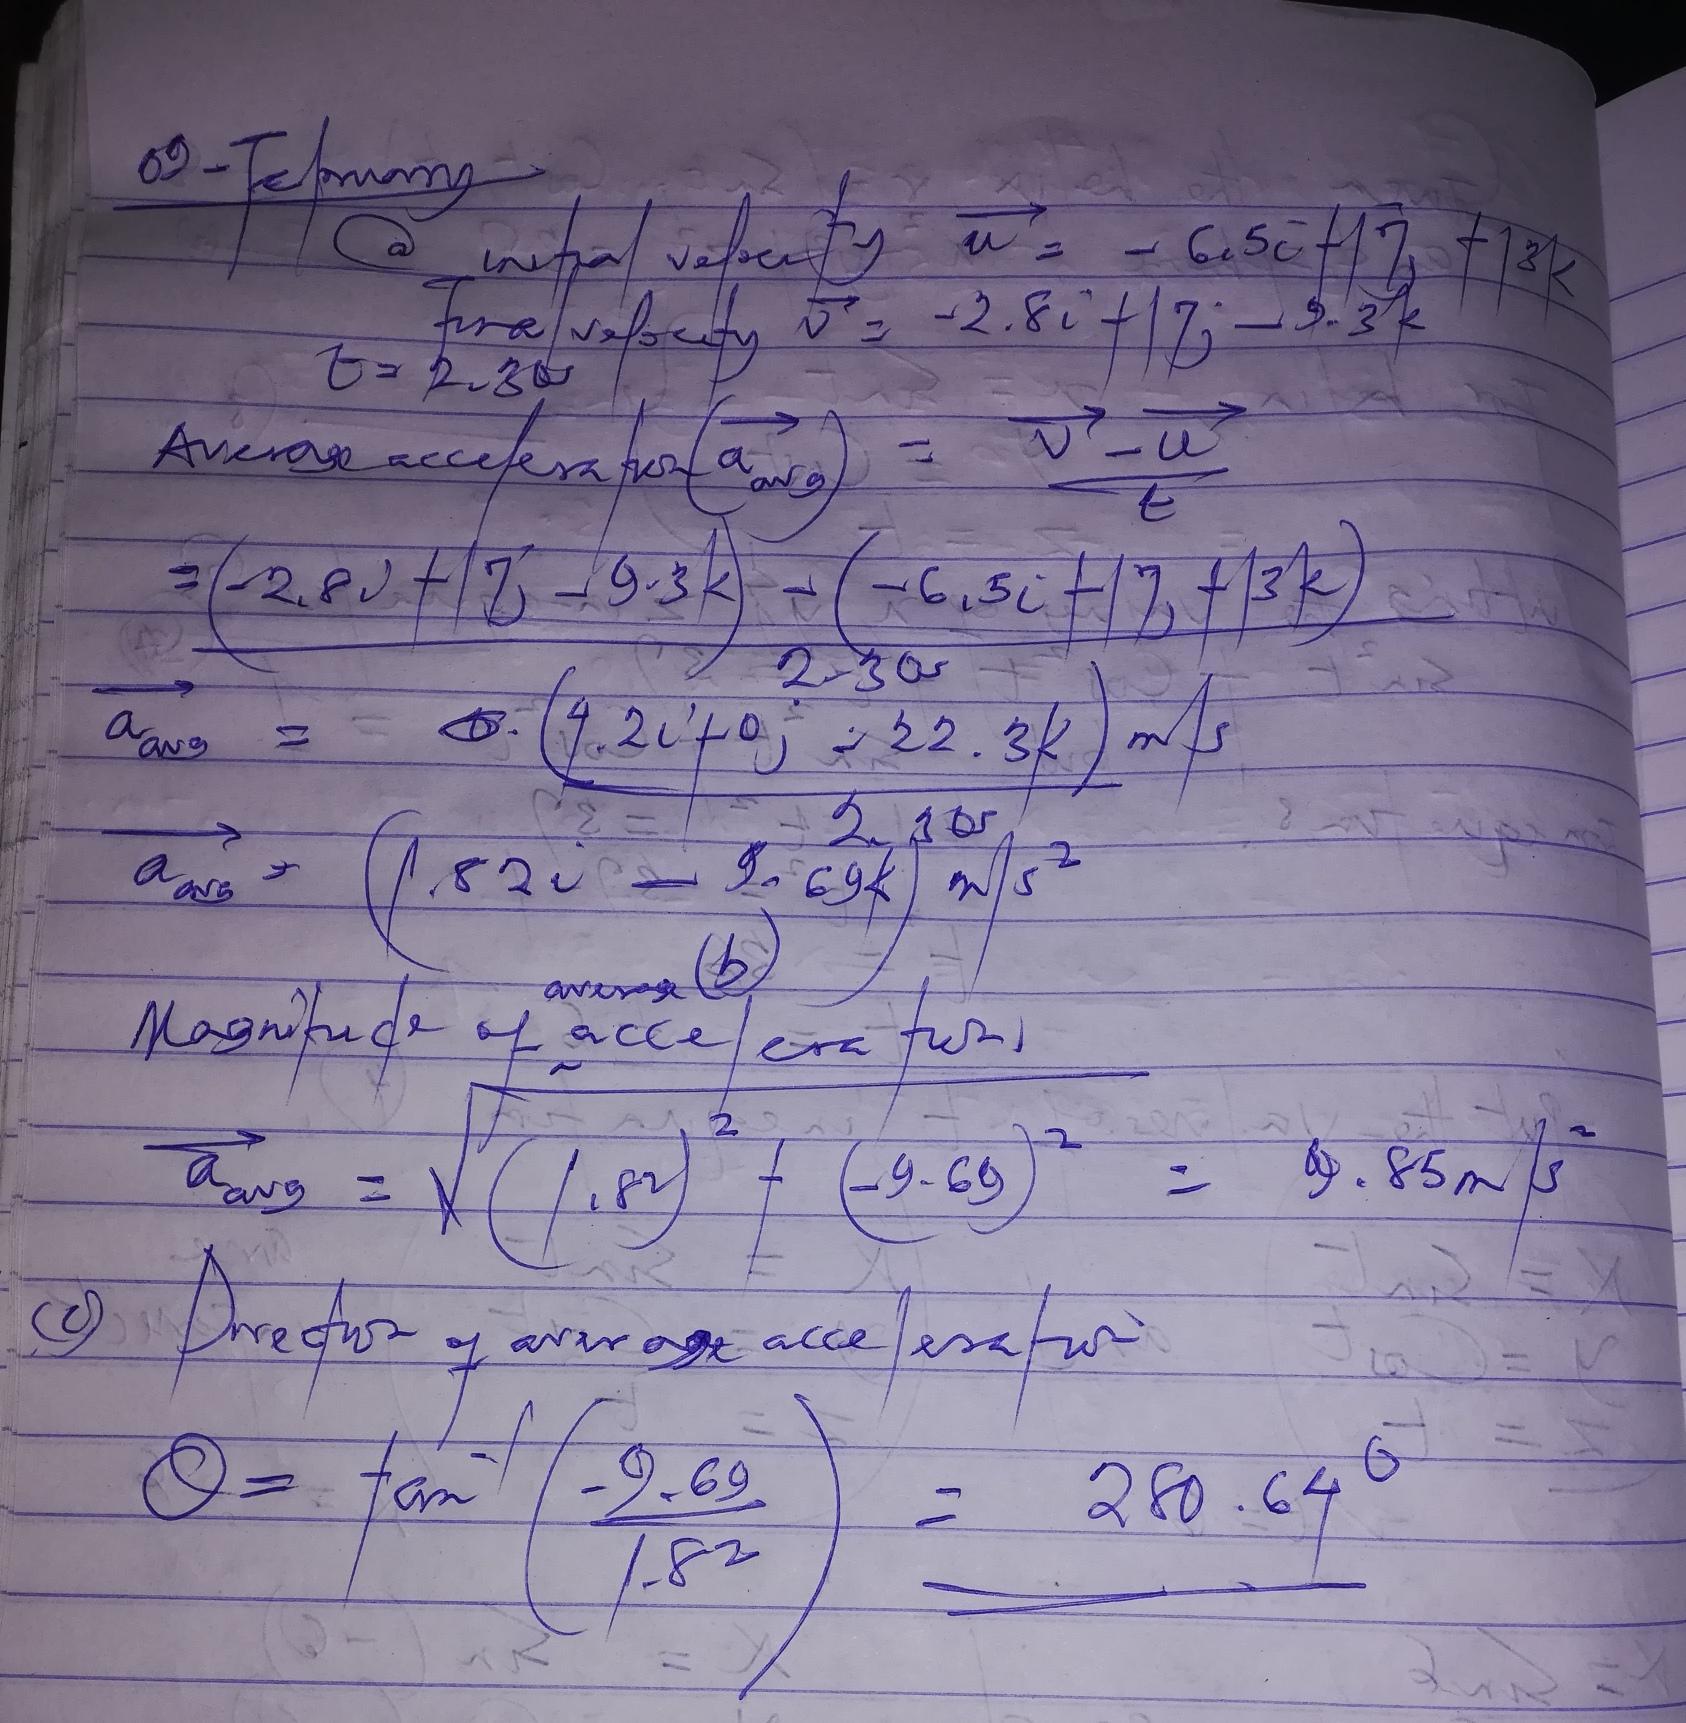 09-February
(a) initial velocity u⃗ = -6.5i+17j+13k
Final velocity v⃗ = -2.8i+17j-9.3k
t= 2.30s
Average acceleration (a⃗avg) = v⃗ - u⃗ / t
= (-2.8i+17j-9.3k) - (-6.5i+17j+13k)
2.30s
a⃗avg = (4.2i+0j-22.3k) m/s
2.30s
a⃗avg = (1.82i - 9.69k) m/s²
(b)
Magnitude of average acceleration,
a⃗avg = √(1.82)² + (-9.69)² = 9.85m/s²
(c) Direction of average acceleration
θ = tan⁻¹ (-9.69 / 1.82) = 280.64°